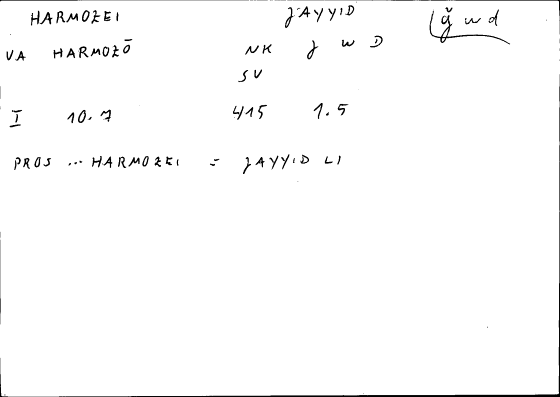 HARMOZEI JAYYID ǧ w d
VA HARMOZŌ NK J W D
SV
I 10.7 415 1.5
PROS ... HARMOZEI = JAYYID LI